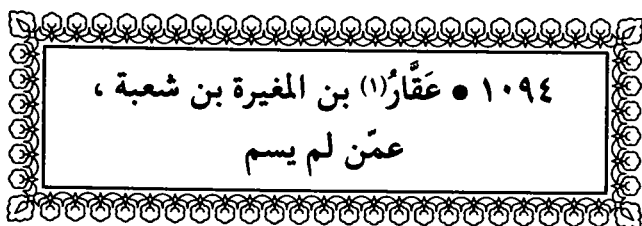 ١٠٩٤ • عَقَّارُ(١) بن المغيرة بن شعبة ،
عمّن لم يسم